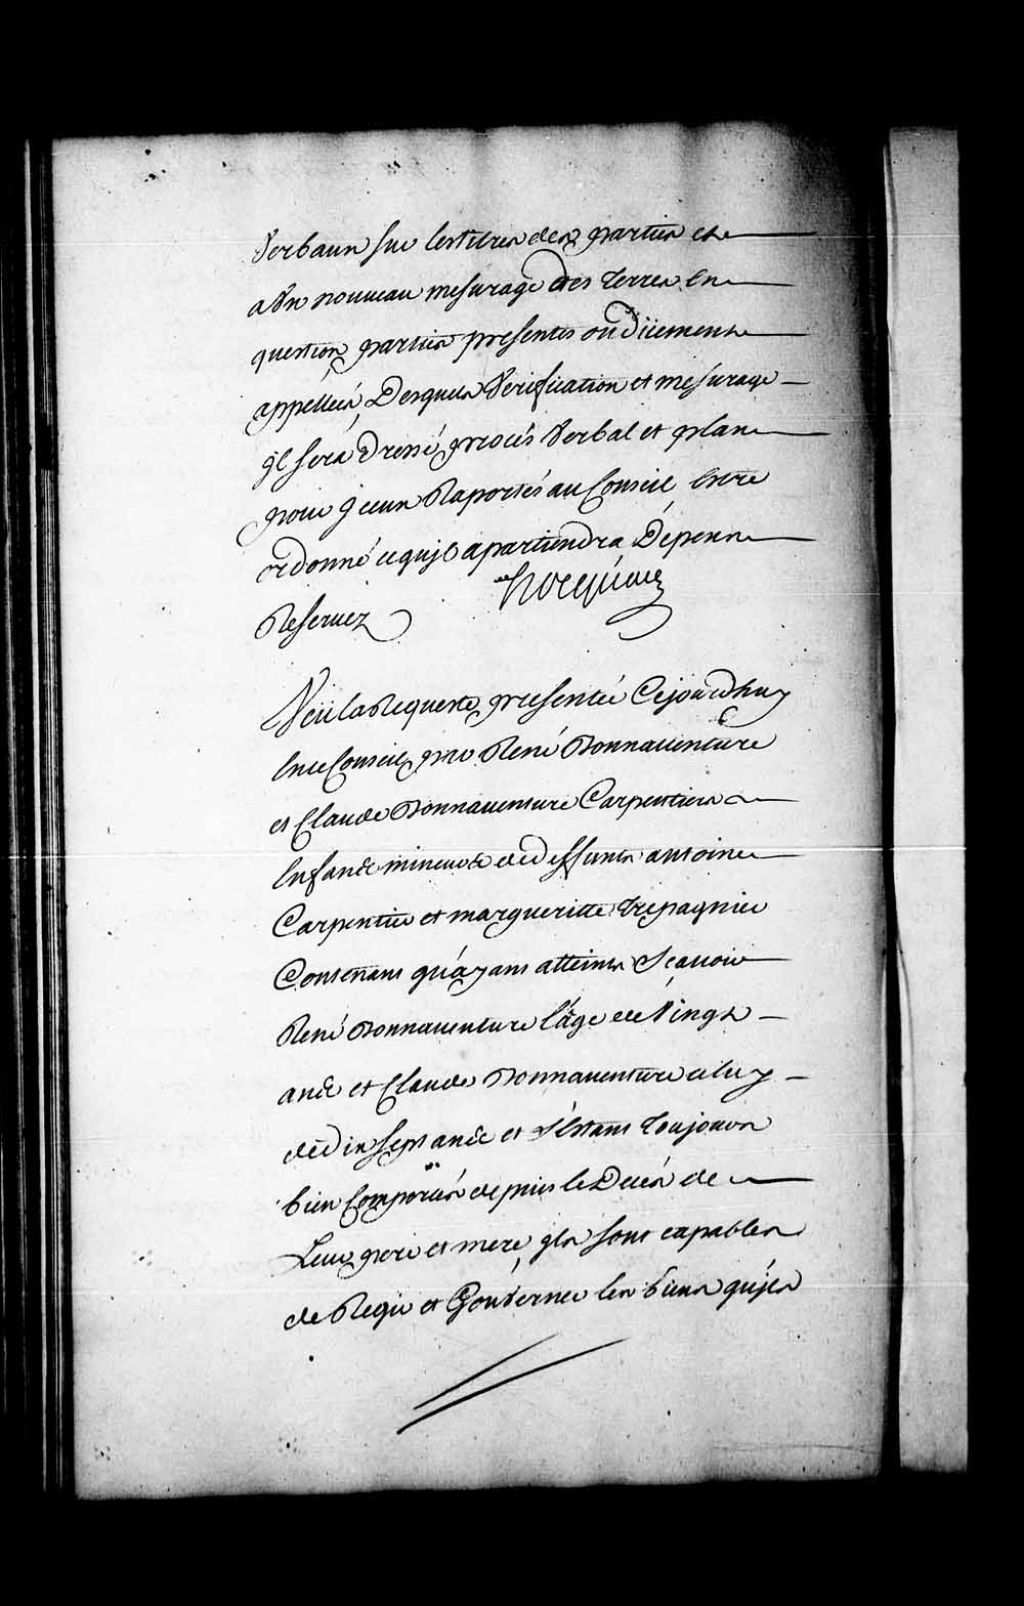 Verbaux sur les titres des parties et
a Un nouveau mesurage des terres En
question, parties presentes ou düement
appellées, Desquels Verification et mesurage
jl sera Dressé, procés Verbal et plan
pour jceux Raportés au Conseil, Estre
ordonné ce qu'jl apartiendra Dépens
Reservez Hocquart
Veü la Requeste, presentée Cejourdhuy
En ce Conseil, par René Bonnaventure
et Claude Bonnaventure Carpentiers
Enfans mineurs de deffunts antoine
Carpentier et margueritte, trepagnier
Contenant qu'ayant atteints Sçavoir
René Bonnaventure l'âge de Vingt
ans et Claude Bonnaventure celuy
de dix sept ans et s'Estant toujours
bien Comportés depuis le Decés de
Leur pere et mere, jls sont capables
de Regir et Gouverner les biens qu'jls